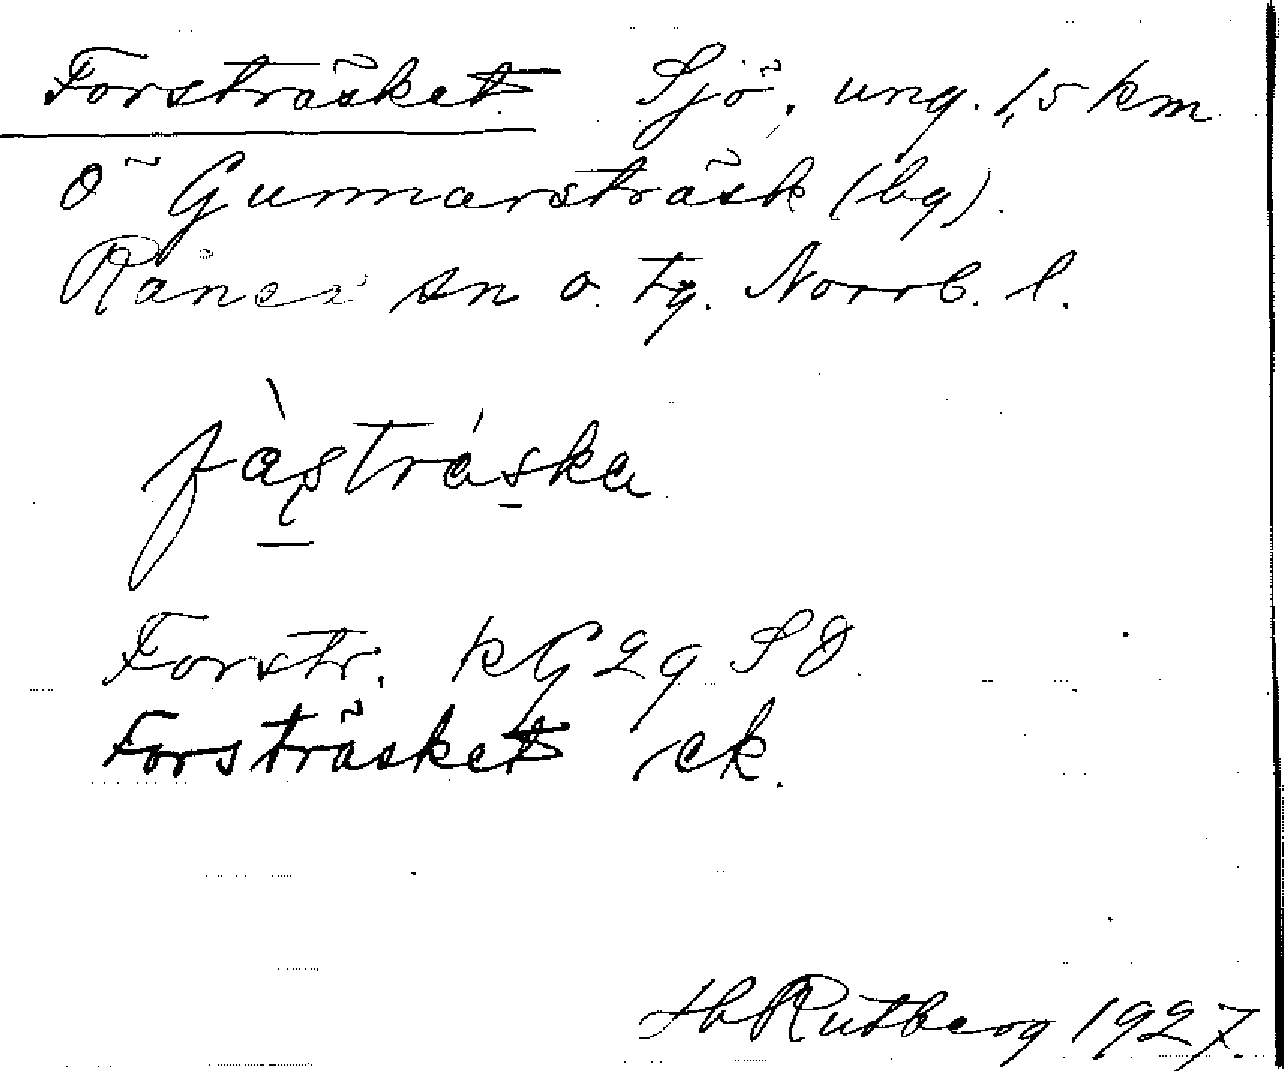 Forsträsket Sjö, ung. 1,5 km
Ö Gunnarsträsk (by).
Råneå sn o. tg. Norrb. l.
fàstráska
Forstr. KG29 SO
Forsträsket ek.
H Rutberg 1927.